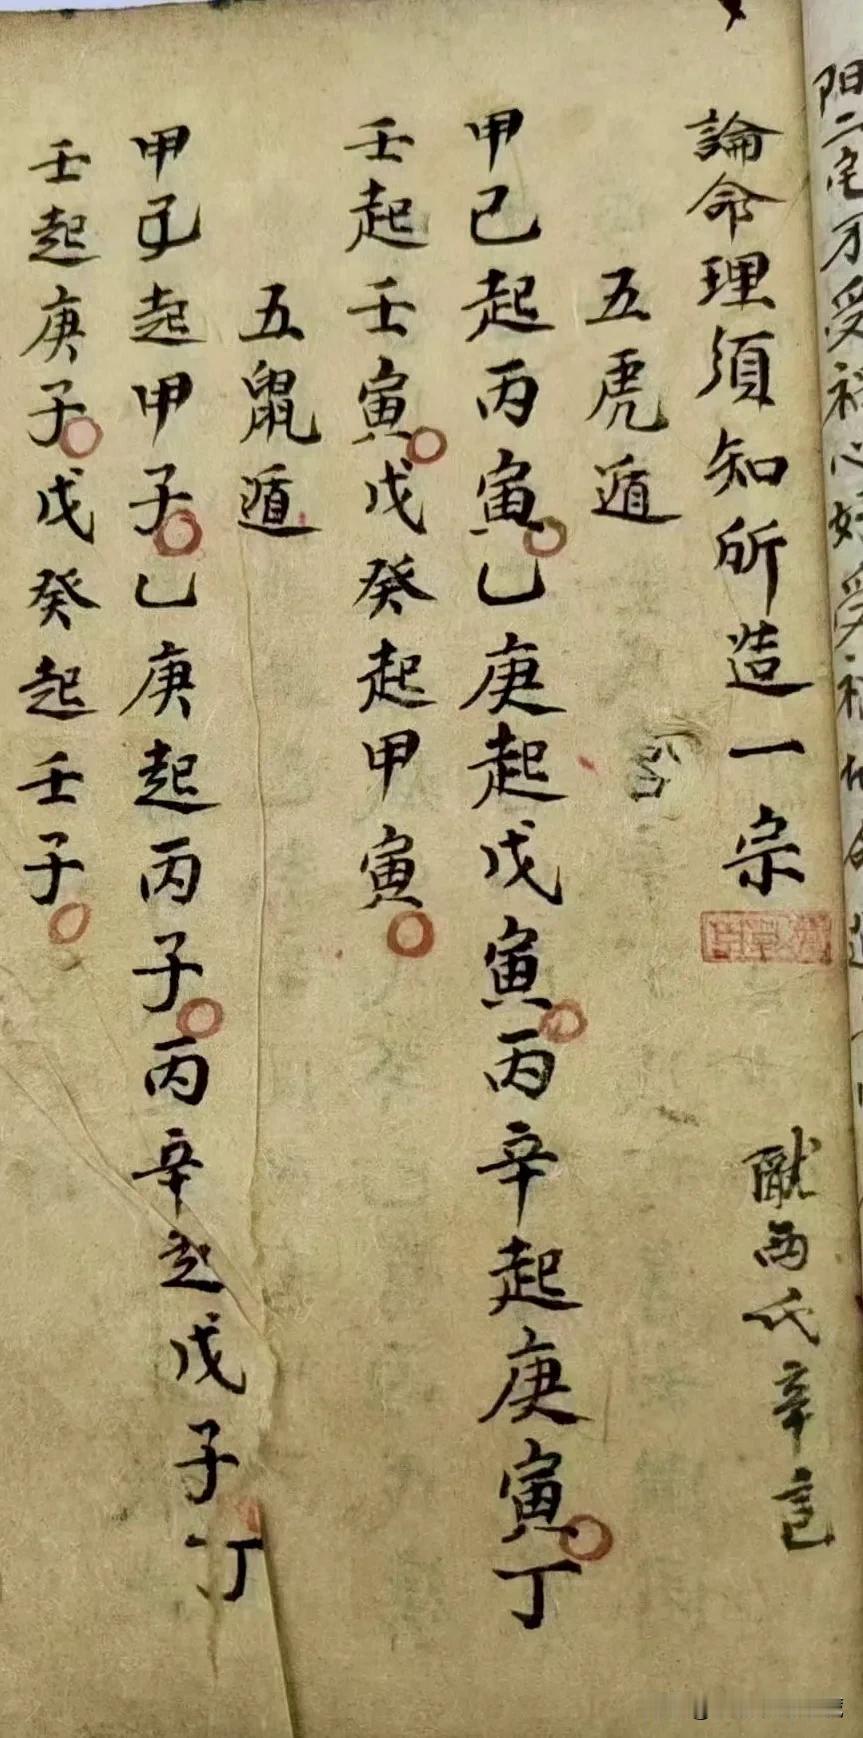 二宅不受福心好受福
論命理須知所造一宗
西氏辛
五虎遁
甲己起丙寅乙庚起戊寅丙辛起庚寅丁
壬起壬寅戊癸起甲寅
五鼠遁
甲己起甲子乙庚起丙子丙辛起戊子丁
壬起庚子戊癸起壬子